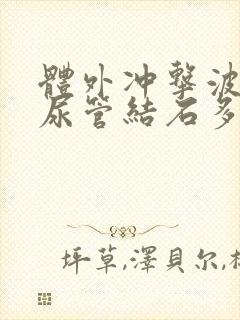 體外冲擊波
尿管結石多
坪草,澤貝尔,